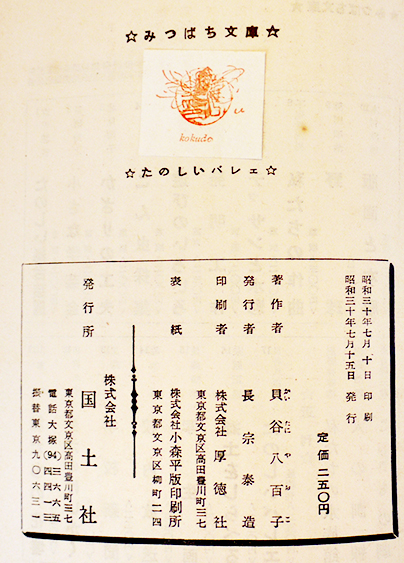 ☆みつばち文庫☆
kokudo
☆たのしいバレエ☆
昭和三十年七月十日 印刷
昭和三十年七月十五日 発行
定価二五〇円
著作者 貝谷八百子
かいたにやおこ
発行者 長宗泰造
印刷者 株式会社 厚徳社
東京都文京区高田豊川町三七
表紙 株式会社 小森平版印刷所
東京都文京区柳町二四
発行所
株式会社 国土社
東京都文京区高田豊川町三七
振替東京九〇六三一